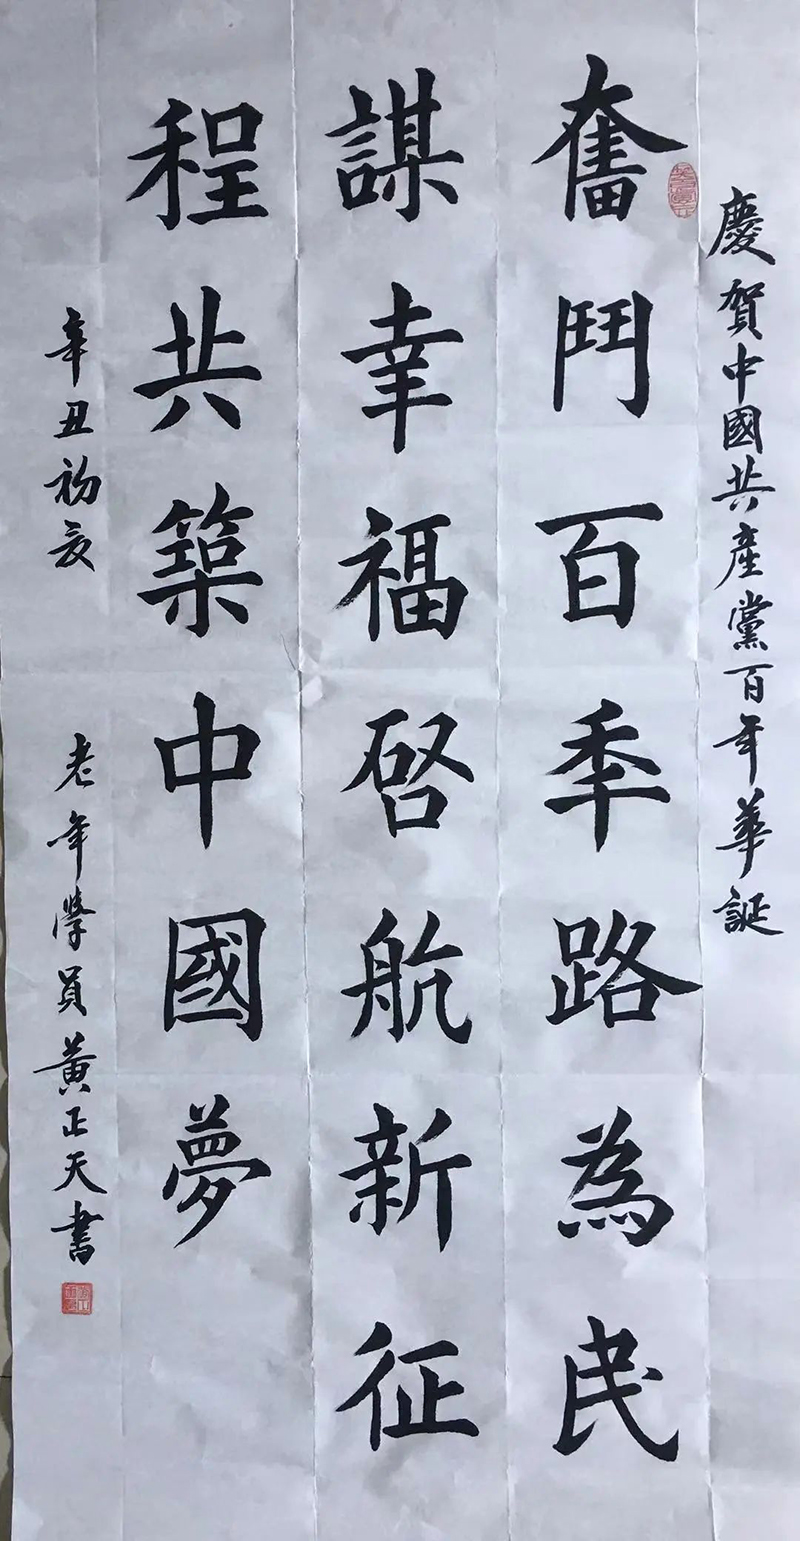 慶賀中國共產黨百年華誕
奮鬥百年路為民
謀幸福啓航新征
程共築中國夢
辛丑初夏
老年學員黃正天書